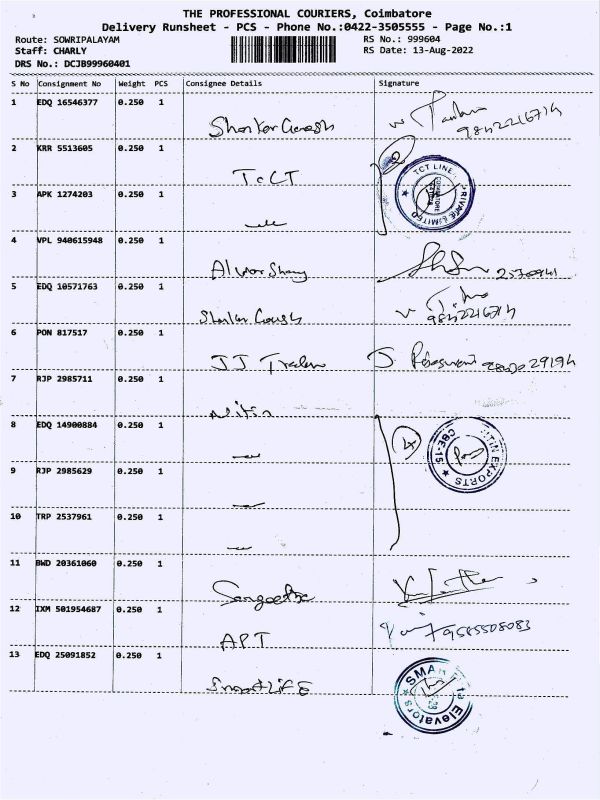 THE PROFESSIONAL COURIERS, Coimbatore
Delivery Runsheet - PCS - Phone No.:0422-3505555 - Page No.:1
Route: SOWRIPALAYAM
RS No.: 999604
Staff: CHARLY
RS Date: 13-Aug-2022
DRS No.: DCJB99960401
S No Consignment No Weight PCS Consignee Details Signature
1 EDQ 16546377 0.250 1
2 KRR 5513605 0.250 1
TCT
2
TCT LINE PRIVATE LIMITED
3 APK 1274203 0.250 1
4 VPL 940615948 0.250 1
5 EDQ 10571763 0.250 1
9842216714
6 PON 817517 0.250 1
JJ Traders J.
7 RJP 2985711 0.250 1
Nitin
8 EDQ 14900884 0.250 1
4
TIN EXPORTS CBE-15
9 RJP 2985629 0.250 1
10 TRP 2537961 0.250 1
11 BWD 20361060 0.250 1
Sangeetha
12 IXM 501954687 0.250 1
APT 9585508083
13 EDQ 25091852 0.250 1
Smart LiFE
SMAR Elevators